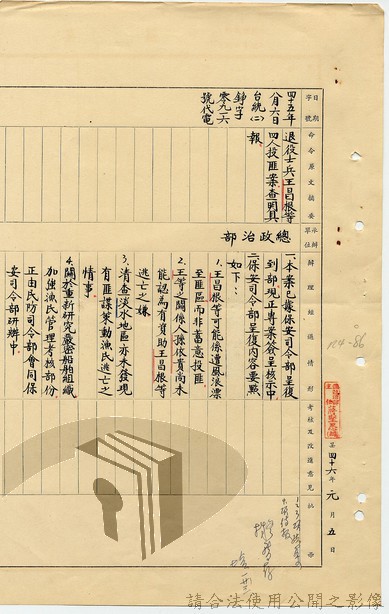 日期字號
四十五年
八月六日
台統(二)
錚字
零九二六
號代電
命令原文摘要
退役士兵王昌根等
四人投匪案查明具
報
承辦單位
總政治部
辦理經過情形
一、本案已據保安司令部呈復
到部現正專案簽呈核示中
二、保安司令部呈復內容要點
如下：
1.王昌根等可能係遭風浪漂
至匪區而非蓄意投匪
2.王等之關係人孫依貴尚未
能認為有資助王昌根等
逃亡之嫌
3.清查淡水地區亦未發現
有匪諜策動漁民逃亡之
情事
4.關於重新研究嚴密船舶組織
加強漁民管理考核部份
正由民防司令部會同保
安司令部研辦中
考核及改進意見
批示
四十六年元月五日
124-86
請合法使用公開之影像